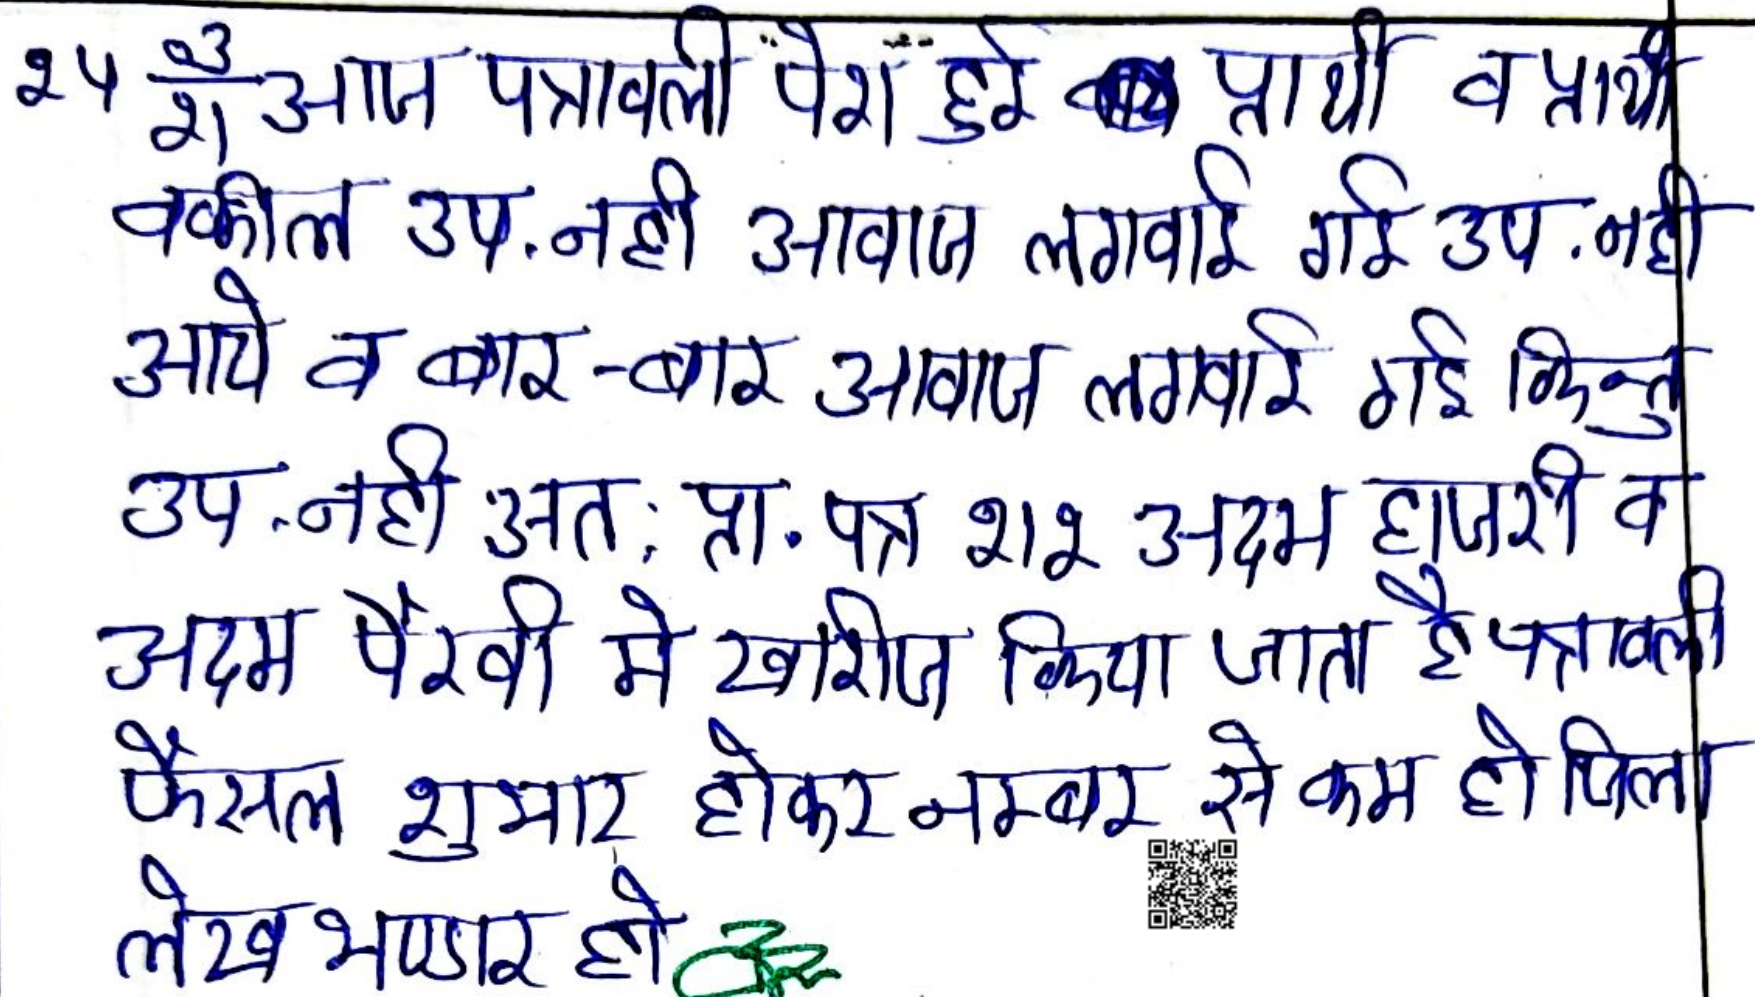 २५ ३/२१ आज पत्रावली पेश हुई प्रार्थी व प्रार्थी
वकील उप. नही आवाज लगवाई गई उप. नही
आये व बार-बार आवाज लगवाई गई किन्तु
उप. नही अत: प्रा. पत्र २१२ अदम हाजरी व
अदम पैरवी मे खारीज किया जाता है पत्रावली
फैसल शुमार होकर नम्बर से कम हो जिला
लेख भण्डार हो